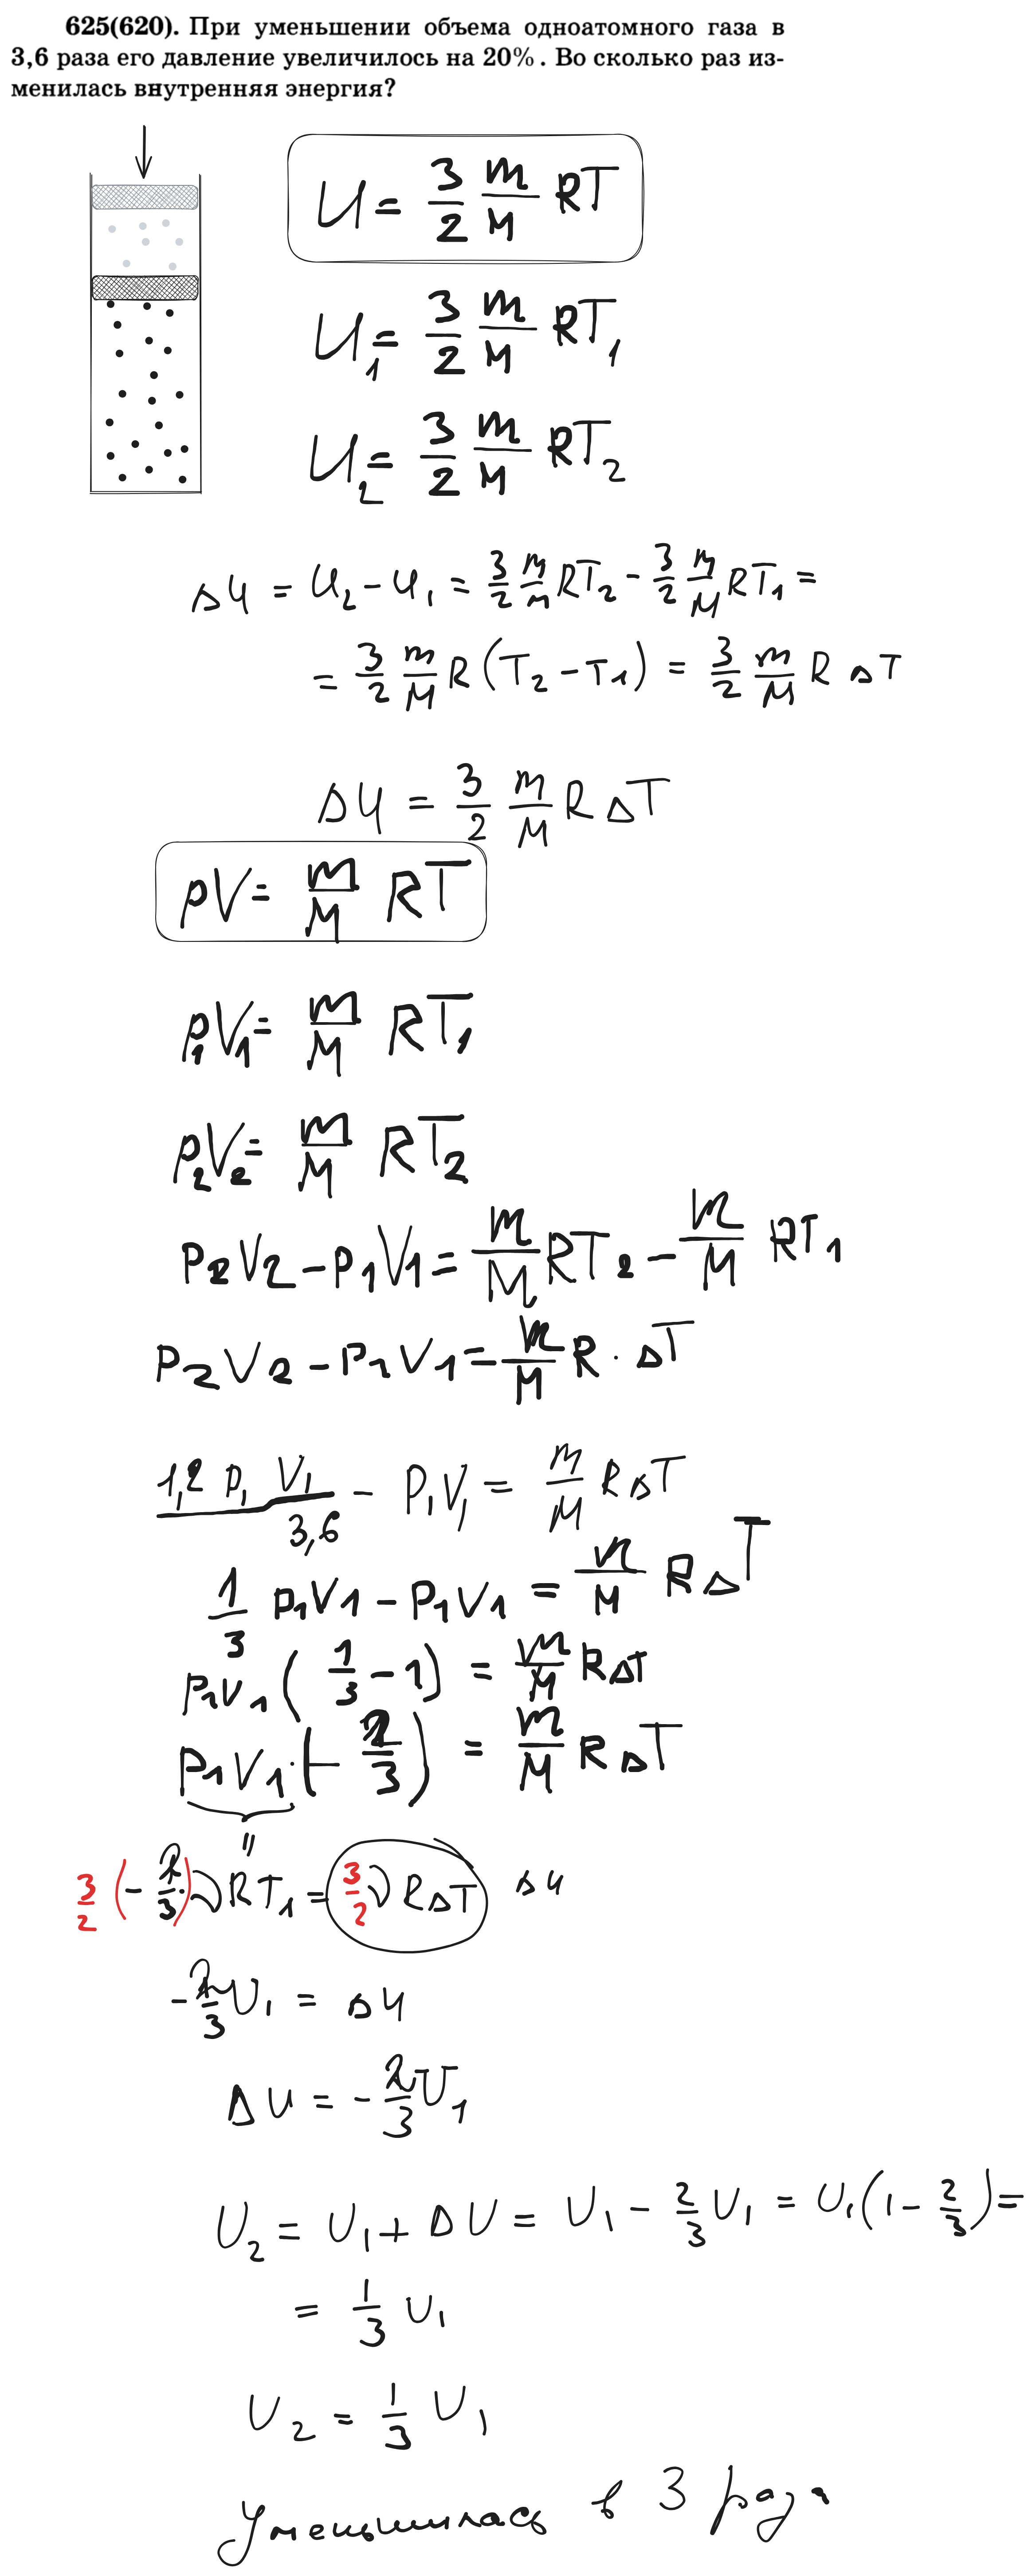 625(620). При уменьшении объема одноатомного газа в
3,6 раза его давление увеличилось на 20%. Во сколько раз из-
менилась внутренняя энергия?
U = 3/2 m/M RT
U₁ = 3/2 m/M RT₁
U₂ = 3/2 m/M RT₂
ΔU = U₂ - U₁ = 3/2 m/M RT₂ - 3/2 m/M RT₁ =
= 3/2 m/M R (T₂ - T₁) = 3/2 m/M R ΔT
ΔU = 3/2 m/M R ΔT
pV = m/M RT
p₁V₁ = m/M RT₁
p₂V₂ = m/M RT₂
P₂V₂ - P₁V₁ = m/M RT₂ - m/M RT₁
P₂V₂ - P₁V₁ = m/M R · ΔT
1,2 P₁ V₁/3,6 - P₁V₁ = m/M RΔT
1/3 P₁V₁ - P₁V₁ = m/M RΔT
P₁V₁ (1/3 - 1) = m/M RΔT
P₁V₁ · (- 2/3) = m/M RΔT
3/2 (- 2/3 · ν) RT₁ = 3/2 ν RΔT ΔU
- 2/3 U₁ = ΔU
ΔU = - 2/3 U₁
U₂ = U₁ + ΔU = U₁ - 2/3 U₁ = U₁ (1 - 2/3) =
= 1/3 U₁
U₂ = 1/3 U₁
Уменьшилась в 3 раза